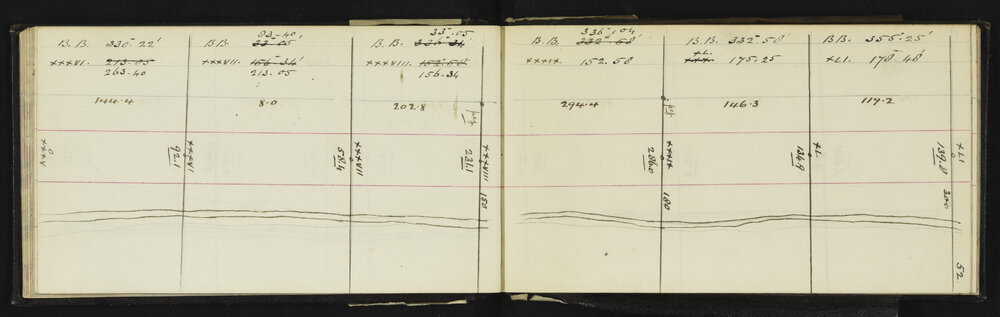 93-40,
B.B. 330-22' B B. 33-05
33-05
B. B. 336-34
XXXVI. 213-05 XXXVII. 156-34' XXXVIII. 152-58'
263-40 213-05 156-34
144.4 8.0 202.8
XXXV 0
92.1 XXXVI
58.4 XXXVII
231.1 XXXVIII
180
336-04
B. B. 332-58' B.B. 332-58' B B. 355-25'
XL.
XXXIX. 152.58 XXX. 175.25 XLI. 178-46'
294.4 146.3 119.2
286.0 XXXIX
180
134.9 XL.
139.8 XLI
300
52.